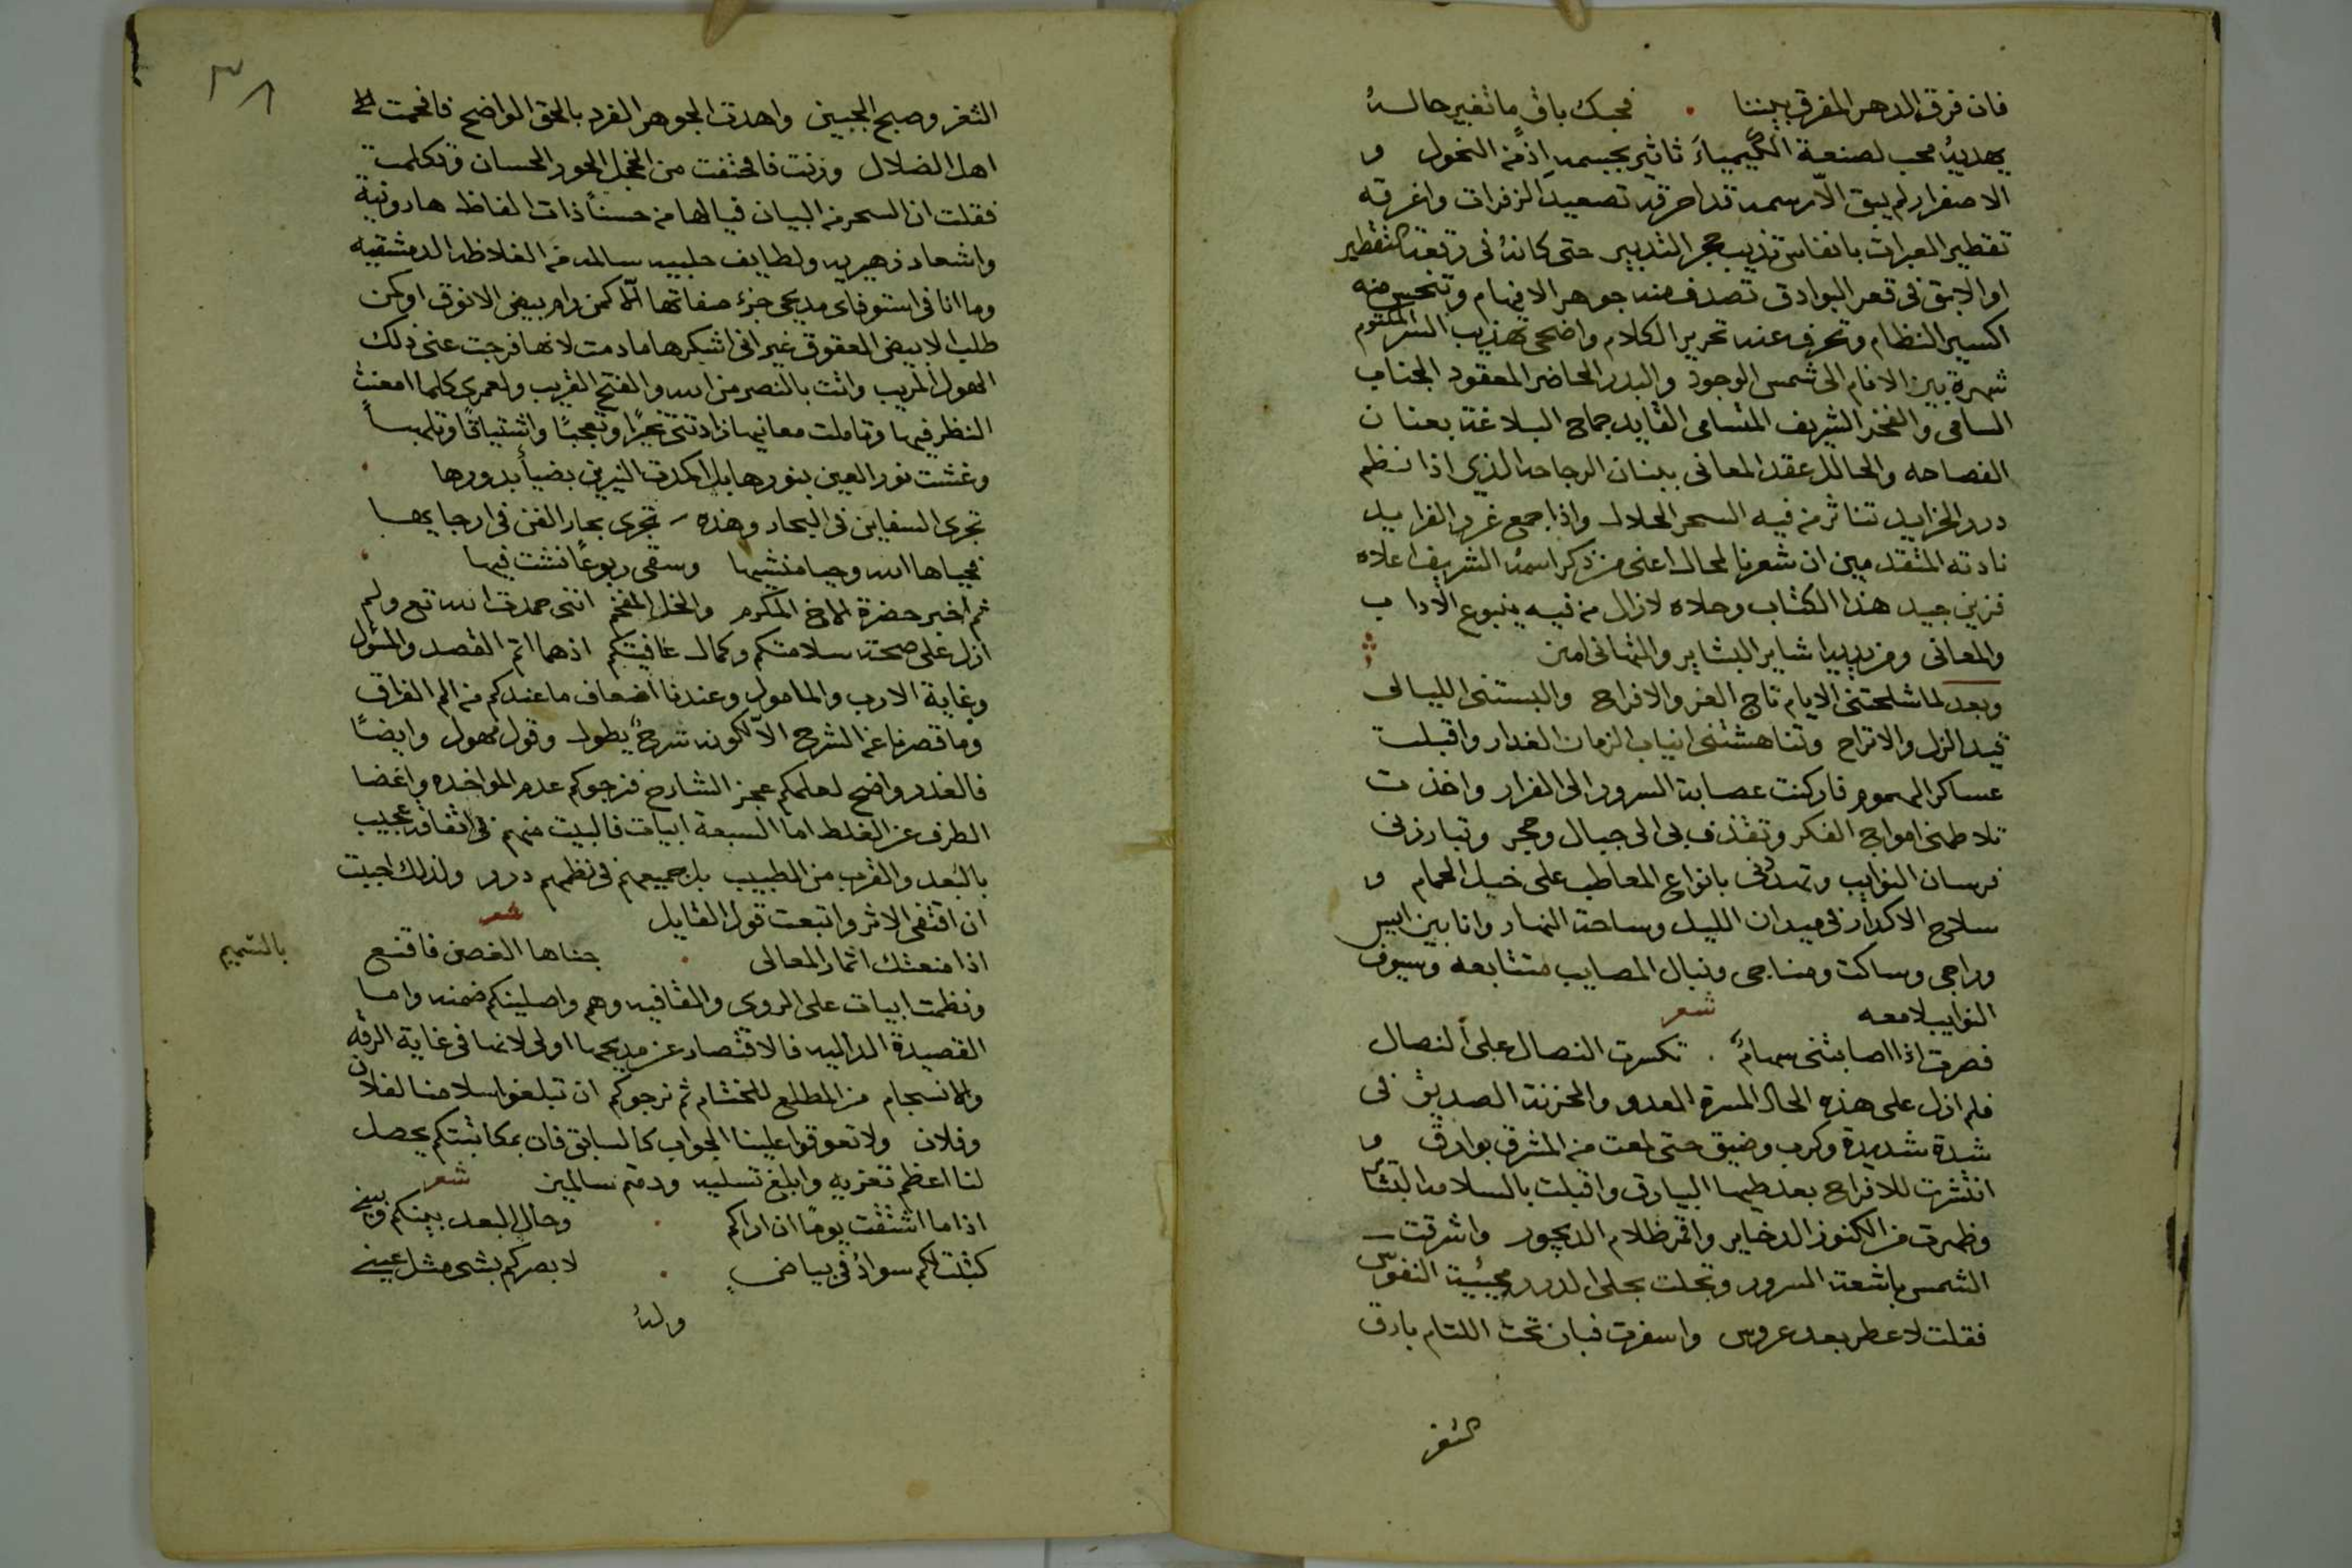 فان فرق الدهر المفرق بيننا . فحبك باق ما تغير حاله
يهديه محب لصنعة الكيمياء تاثير بجسمه اذ من النحول و
الاصفرار لم يبق الا رسمه قد احرقه تصعيد الزفرات واغرقه
تقطير العبرات بانفاس تذيب حجر التدبير حتى كانه في رقعة التقطير
او الابق في قعر البوادق تصدف منه جوهر الافهام وتنحبس منه
اكسير النظام وتحرف عنه تحرير الكلام واضحى تهذيب السر المكتوم
شهرة بين الانام الى شمس الوجود والبدر الحاضر المعقود الجناب
السامى والفخذ الشريف المتسامى القايد جماح البلاغة بعنان
الفصاحه والحالل عقد المعانى ببنان الرجاحه الذي اذا نظم
درر الخرايد تناثر من فيه السحر الحلال واذا جمع غرر الفرايد
نادته المتقدمين ان شعرنا لمحال اعنى من ذكر اسمه الشريف اعلاه
فزين جيد هذا الكتاب وحلاه لازال من فيه ينبوع الاداب
والمعانى ومن يديه اشاير البشاير والتهانى امين
وبعد لما شلحتنى الايام تاج العز والافراح والبستنى الليالى
قيد الذل والاتراح وتناهشتنى انياب الزمان الغدار واقبلت
عساكر الهموم فاركنت عصابة السرور الى الفرار واخذت
تلاطمنى امواج الفكر وتقذف بى الى جبال وحجر وتبارزنى
فرسان النوايب وتمدنى بانواع المعاطب على خيل الحمام و
سلاح الاكدار فى ميدان الليل وساحة النهار وانا بين ايس
وراجى وساكت ومناجى ونبال المصايب متتابعه وسيوف
النوايب لامعه شعر
فصرت اذا اصابتنى سهام . تكسرت النصال على النصال
فلم ازل على هذه الحال المسرة العدو والمحزنة الصديق فى
شدة شديدة وكرب وضيق حتى لمعت من المشرق بوارق و
انتشرت للافراح بعد طيها البيارق واقبلت بالسلامه البشاير
وظهرت من الكنوز الدخاير واقمر ظلام الديجور واشرقت
الشمس باشعة السرور وتجلت بحلى الدرر محيية النفوس
فقلت لا عطر بعد عروس واسفرت فبان تحت اللثام بارق
الثغر
٣٨
الثغر وصبح الجبين واهدت الجوهر الفرد بالحق الواضح فافحمت
اهل الضلال ورنت فاختفت من الخجل الحور الحسان وتكلمت
فقلت ان السحر من البيان فيالها من حسنا ذات الفاظ هارونية
واشعار زهيريه ولطايف حلبيه سالمه من الغلاظه الدمشقيه
وما انا فى استوفاى مديحى جزء صفاتها الا كمن رام بيض الانوق او كمن
طلب الابيض العقوق غير انى اشكرها مادمت لانها فرجت عنى ذلك
الهول المريب واتت بالنصر من الله والفتح القريب ولعمرى كلما امعنت
النظر فيها وتاملت معانيها زادتنى تحيرًا وتعجبًا واشتياقًا وتلهبًا
وغشت نور العين بنورها بل اكمدت النيرين بضياء بدورها
تجرى السفاين فى البحار وهذه - تجرى بحار الفن فى ارجايها
فحياها الله وحيا منشيها وسقى ربوعًا نشت فيها
ثم اخبر حضرة الاخ المكرم والخل المفخم اننى حمدت الله تع ولم
ازل على صحة سلامتكم وكمال عافيتكم اذ هما اتم القصد والسول
وغاية الارب والمامول وعندنا اضعاف ما عندكم من الم الفراق
وما قصرنا عن الشرح الا لكونه شرح يطول وقول مهول وايضًا
فالعذر واضح لعلمكم عجز الشارح فنرجوكم عدم المواخذه واغضا
الطرف عن الغلط اما السبعة ابيات فالبيت منهم فى اتفاقه عجيب
بالبعد والقرب من الطبيب بل جميعهم فى نظمهم درر ولذلك احببت
ان اقتفى الاثر واتبعت قول القايل شعر
اذا منعتك اثمار المعالى . جناها الغصن فاقنع بالشميم
ونظمت ابيات على الروى والقافيه وهم واصلينكم ضمنه واما
القصيدة الداليه فالاقتصار عن مديحها اولى لانها فى غاية الرقه
والانسجام من المطلع للختام ثم نرجوكم ان تبلغوا سلامنا لفلان
وفلان ولا تعوقوا علينا الجواب كالسابق فان بمكاتبتكم يحصل
لنا اعظم تعزيه وابلغ تسليه ودمتم سالمين شعر
اذا ما اشتقت يومًا ان اراكم . وحال البعد بينكم وبينى
كتبت لكم سواد فى بياض . لابصركم بشى مثل عينى
وله